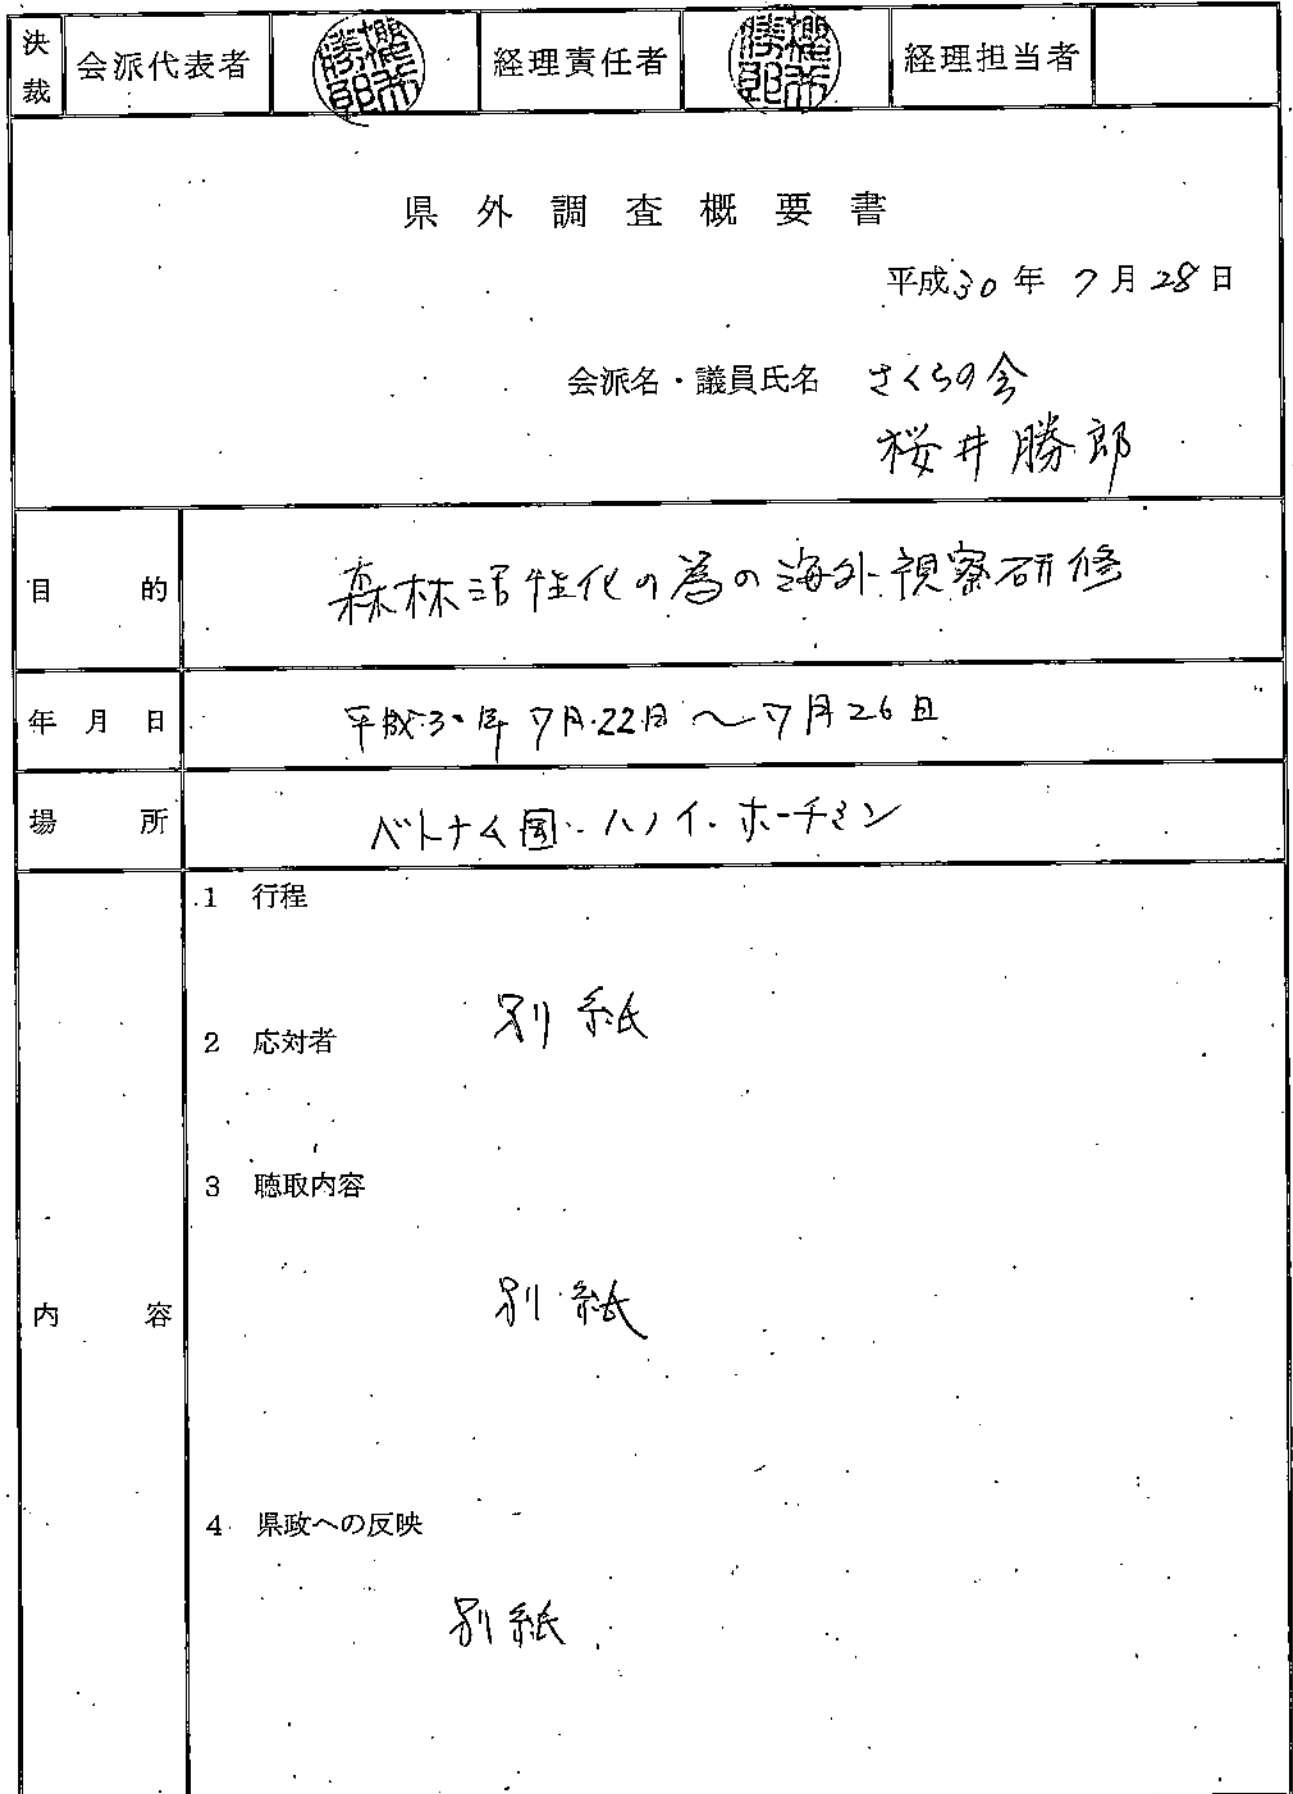 決裁 会派代表者 経理責任者 経理担当者
県外調査概要書
平成30年7月28日
会派名・議員氏名 さくらの会
桜井勝郎
目的 森林活性化の為の海外視察研修
年月日 平成30年7月22日～7月26日
場所 ベトナム国・ハノイ・ホーチミン
1 行程
別紙
2 応対者
3 聴取内容
別紙
内容
4 県政への反映
別紙